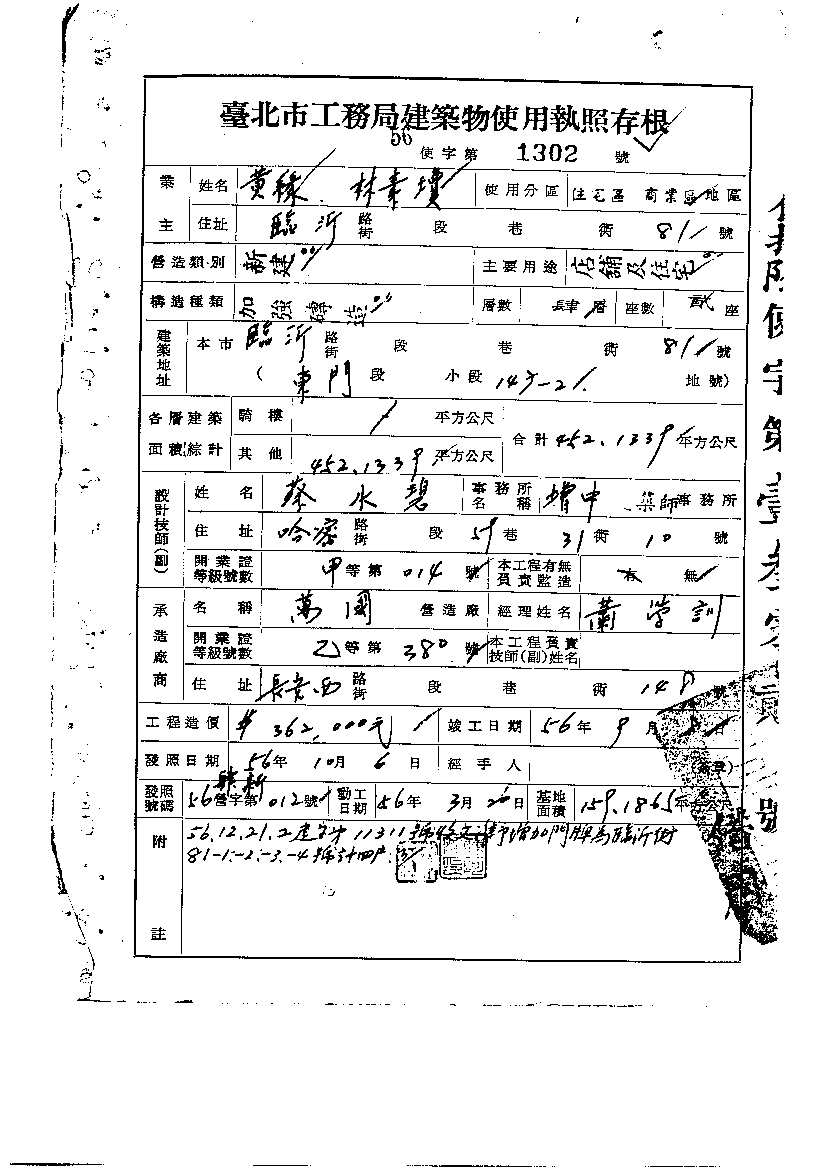 臺北市工務局建築物使用執照存根
56 使字第 1302 號
業主 姓名 黃 林素 使用分區 住宅區 商業區 地區
住址 臨沂 路街 段 巷 街 81 號
營造類別 新建 主要用途 店舖及住宅
構造種類 加強磚造 層數 肆層 座數 貳座
建築地址 本市 臨沂 路街 段 巷 街 81 號
( 東門 段 小段 145-21 地號)
各層建築面積綜計 騎樓 / 平方公尺 合計 452.1339 平方公尺
其他 452.1339 平方公尺
設計技師(副) 姓名 蔡水碧 事務所名稱 增中 築師事務所
住址 哈密 路街 段 59 巷 31 街 10 號
開業證等級號數 甲等第 014 號 本工程有無負責監造 有 無
承造廠商 名稱 萬國 營造廠 經理姓名 蕭學訓
開業證等級號數 乙等第 380 號 本工程負責技師(副)姓名
住址 長安西 路街 段 巷 街 148 號
工程造價 $ 362,000元 竣工日期 56年 9月 日
發照日期 56年 10月 6日 經手人
發照號碼 56營字第 012號 動工日期 56年 3月 26日 基地面積 159.1865平方公尺
附註 56.12.21. 建字第11311號 增加門牌為臨沂街
81-1.-2.-3.-4號計四戶
使字第壹叁零貳號